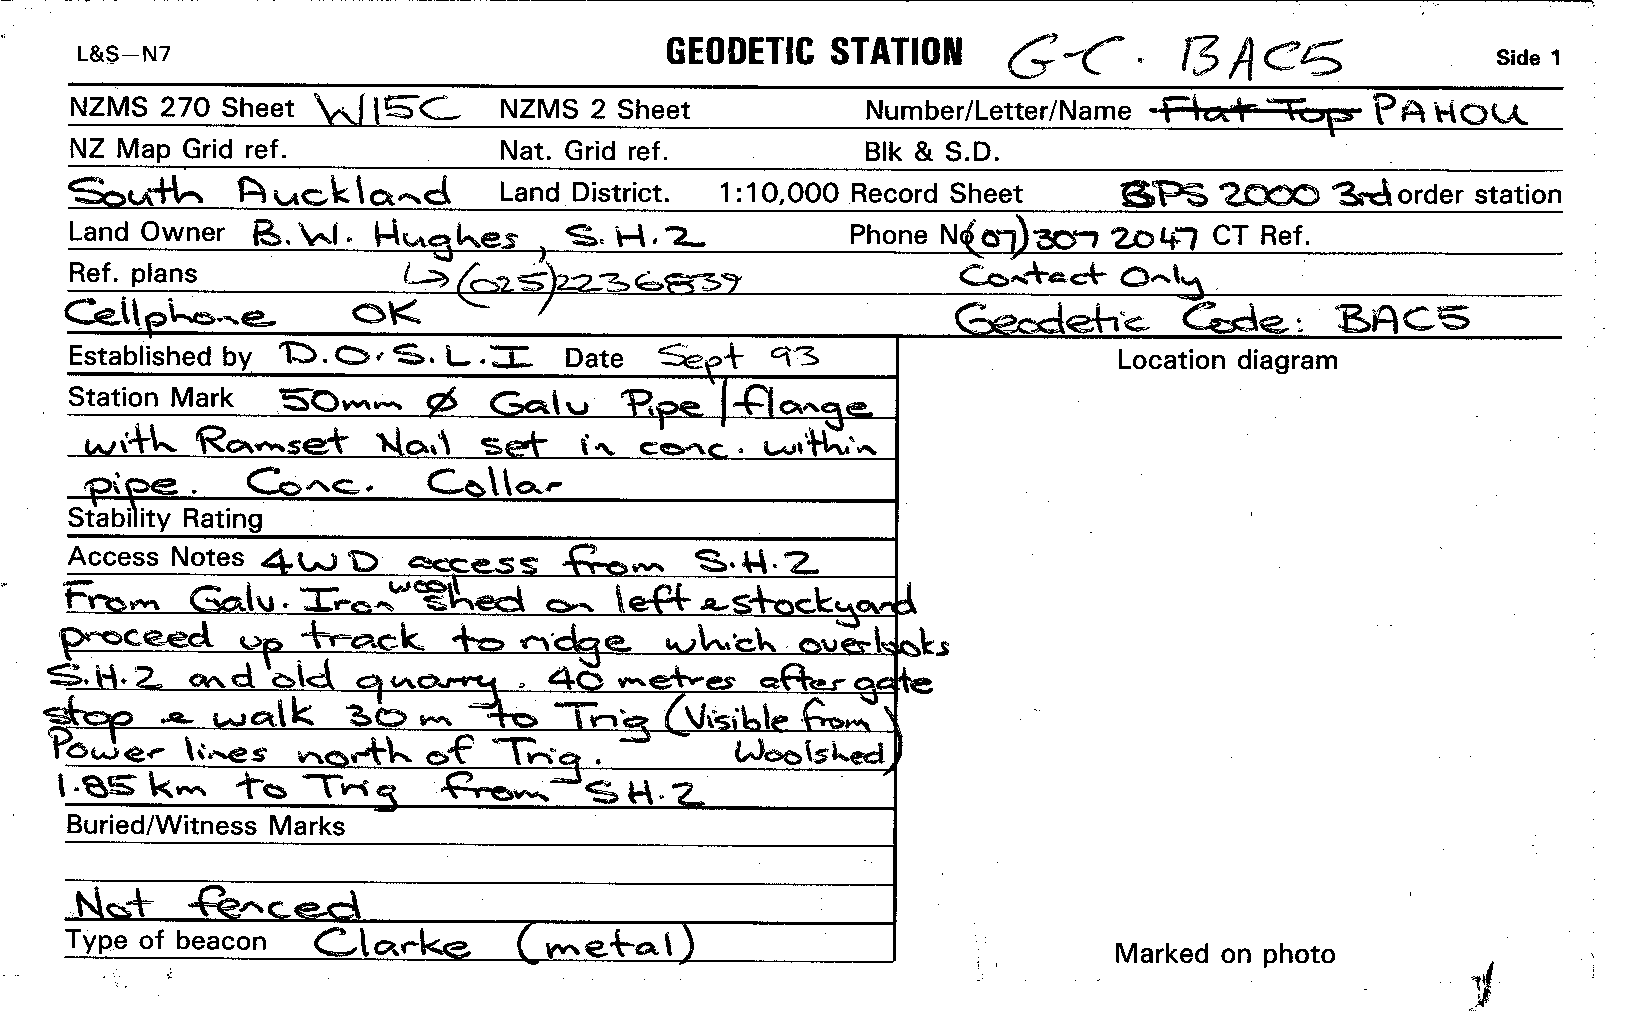 L&S—N7 GEODETIC STATION G-C. BAC5 Side 1
NZMS 270 Sheet W15C NZMS 2 Sheet Number/Letter/Name Flat Top PAHOU
NZ Map Grid ref. Nat. Grid ref. Blk & S.D.
South Auckland Land District. 1:10,000 Record Sheet GPS 2000 3rd order station
Land Owner B.W. Hughes, S.H.2 Phone No (07) 307 2047 CT Ref.
Ref. plans ↳ (025) 2236839 Contact Only
Cellphone OK Geodetic Code: BAC5
Established by D.O.S.L.I Date Sept 93 Location diagram
Station Mark 50mm Ø Galv Pipe/flange
with Ramset Nail set in conc. within
pipe. Conc. Collar
Stability Rating
Access Notes 4WD access from S.H.2
From Galv. Iron wool shed on left & stockyard
proceed up track to ridge which overlooks
S.H.2 and old quarry. 40 metres after gate
stop & walk 30m to Trig (Visible from
Power lines north of Trig. Woolshed)
1.85 km to Trig from SH.2
Buried/Witness Marks
Not fenced
Type of beacon Clarke (metal) Marked on photo